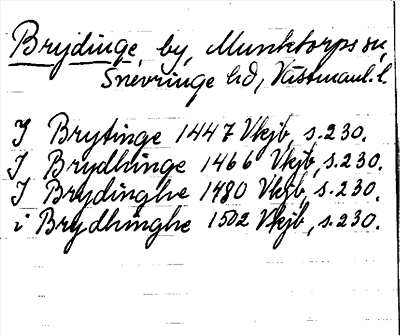 Brydinge, by, Munktorps sn,
Snevringe hd, Västmanl. l.
I Brytinge 1447 Vkjb, s. 230.
I Brydhinge 1466 Vkjb, s. 230.
I Brydinghe 1480 Vkjb, s. 230.
i Brydhinghe 1502 Vkjb, s. 230.